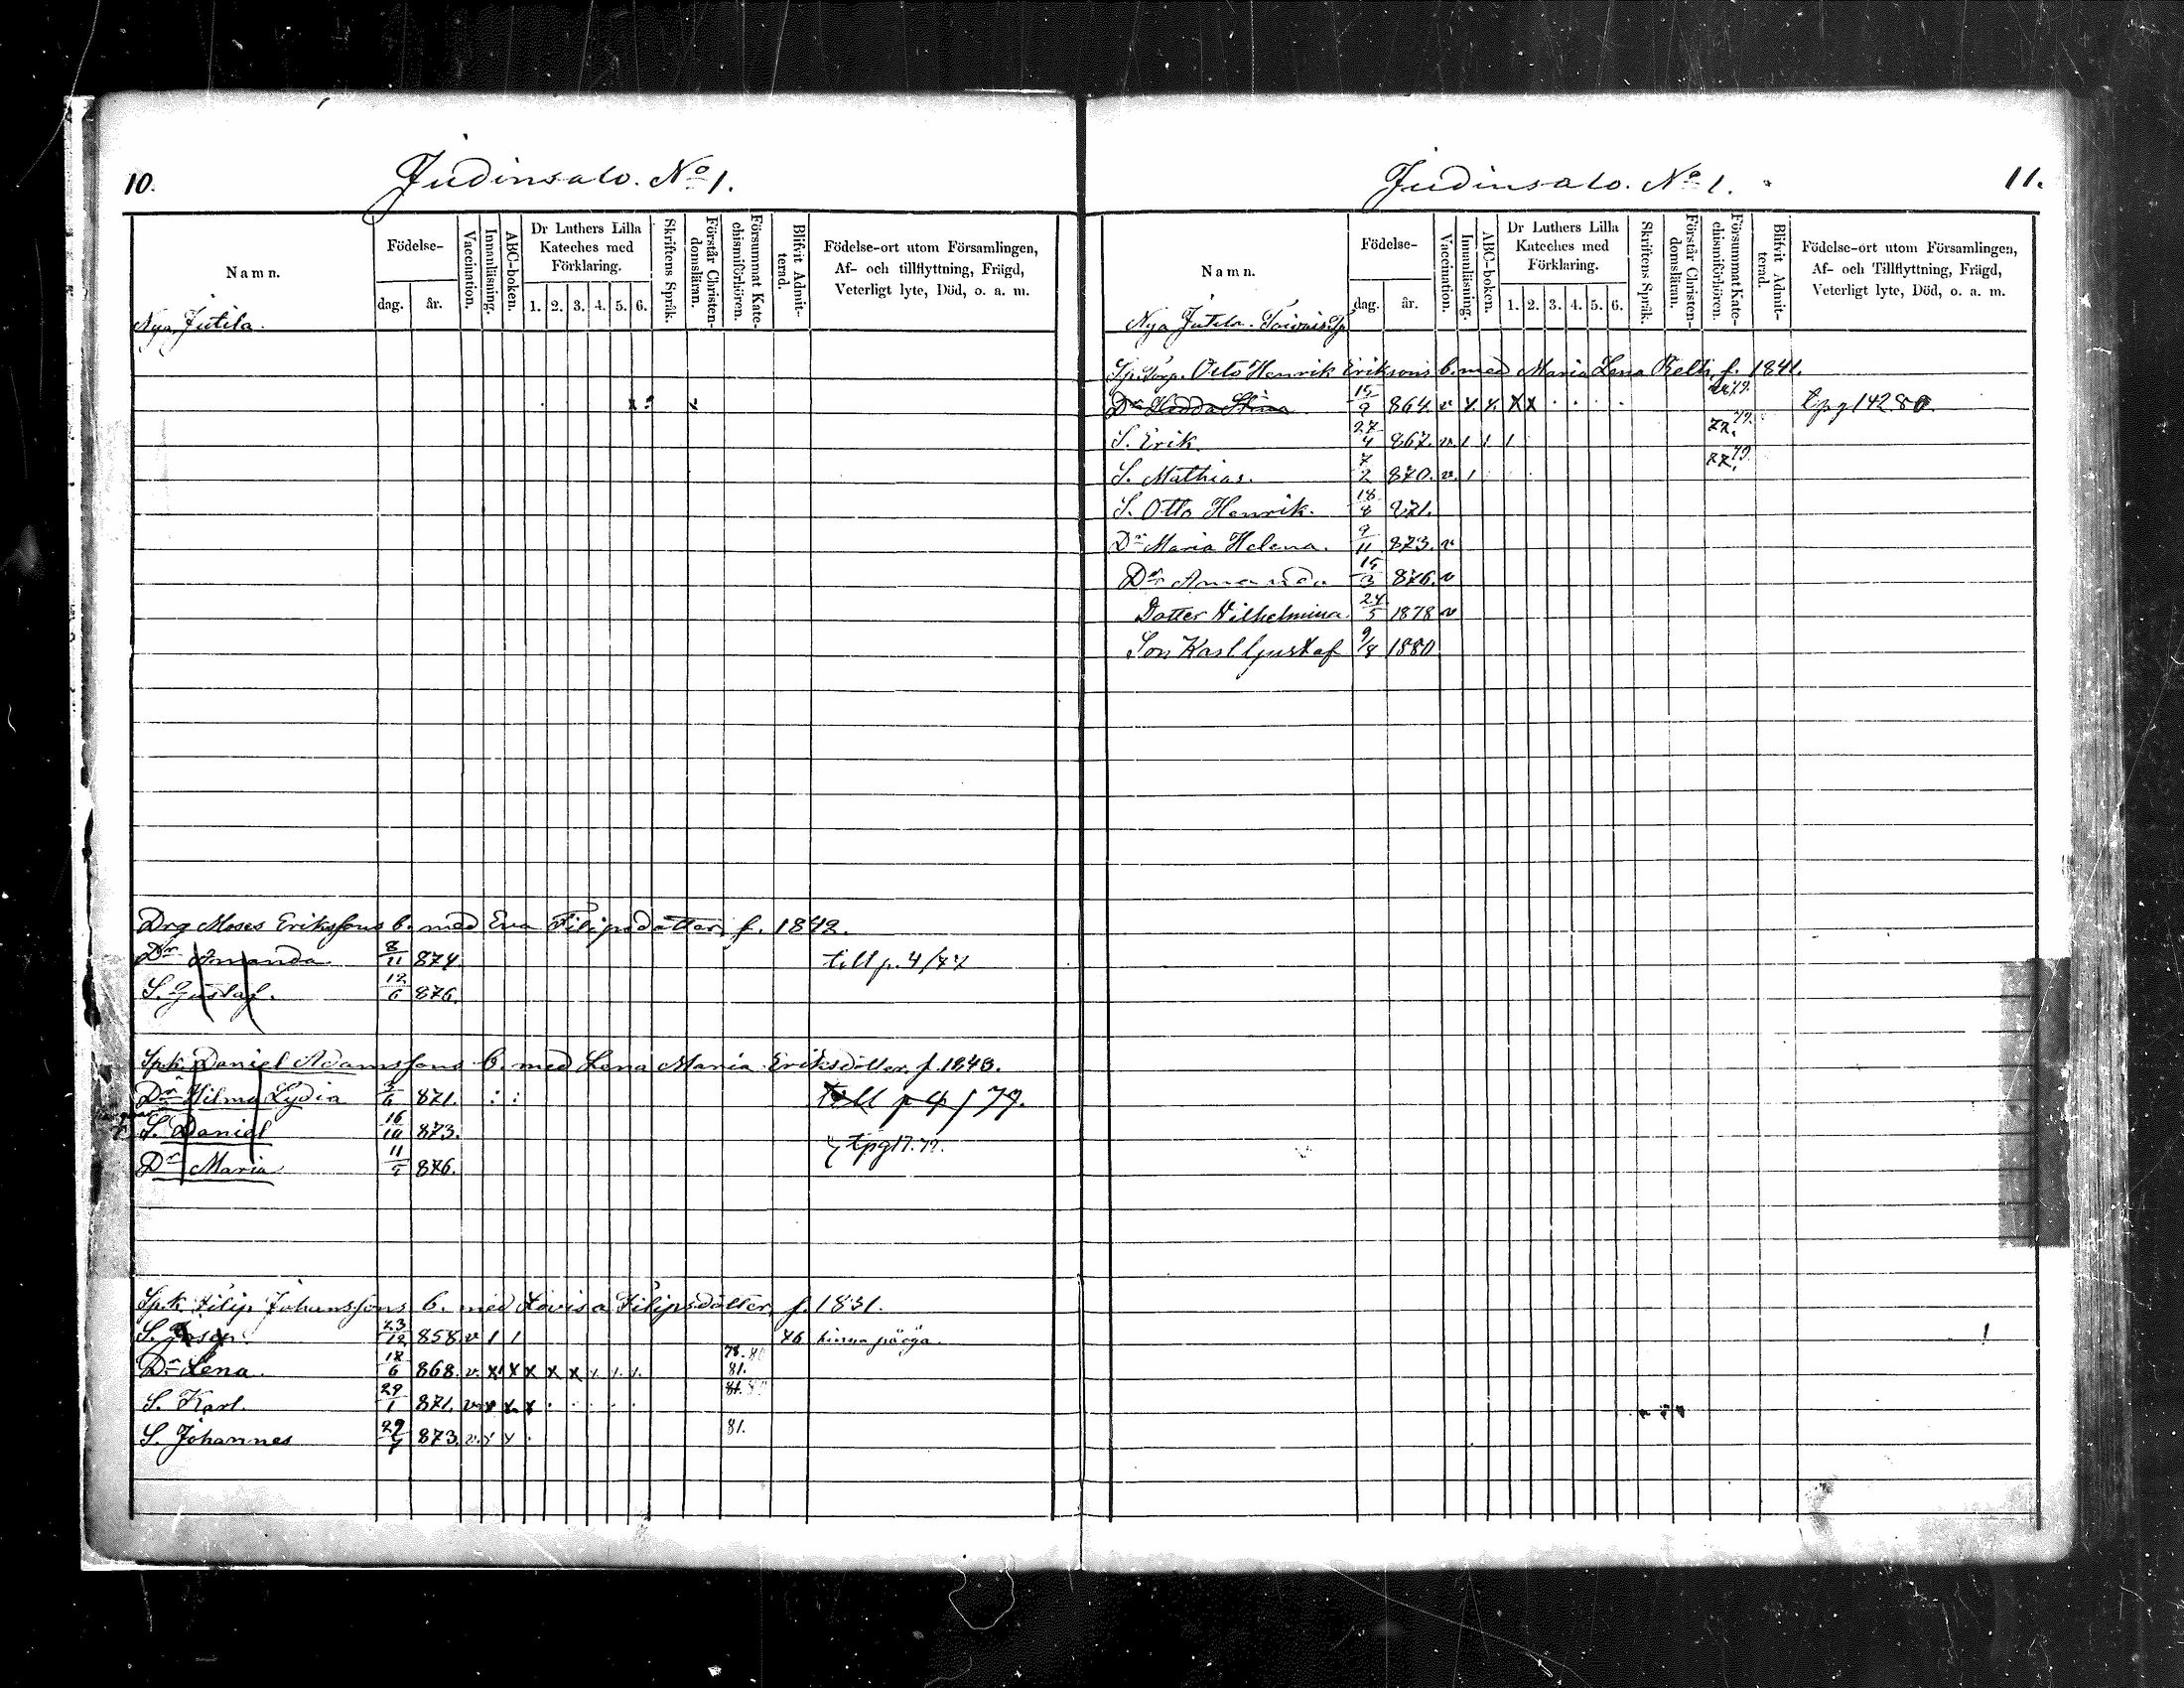 10.
Judinsalo. No 1.
Namn.
Födelse-
dag.
år.
Vaccination.
Innanläsning.
ABC-boken.
Dr Luthers Lilla Kateches med Förklaring.
1. 2. 3. 4. 5. 6.
Skriftens Språk.
Förstår Christendomsläran.
Försummat Katechismiförhören.
Blifvit Admitterad.
Födelse-ort utom Församlingen,
Af- och tillflyttning, Frägd,
Veterligt lyte, Död, o. a. m.
Nya Jutila.
Drg Moses Erikssons b. med Eva Filipsdotter, f. 1842.
Dr Amanda 8/11 874. till p. 4/77
S. Gustaf. 12/6 876.
Sp.k. Daniel Adamssons b. med Lena Maria Eriksdotter f. 1843.
Dr Hilma Lydia 3/6 871. : : till p 4/77.
S. Daniel 16/10 873. tpg 17. 79.
Dr Maria 11/5 876.
Sp.k. Filip Johanssons b. med Lovisa Filipsdotter, f. 1831.
S. 23/12 858. v 1 1 76
Dr Lena. 18/6 868. v. x x x x x 78. 80 81.
S. Karl. 29/1 871. v. x x x 81.
S. Johannes 29/7 873. v. 81.
Judinsalo. No 1.
11.
Namn.
Födelse-
dag.
år.
Vaccination.
Innanläsning.
ABC-boken.
Dr Luthers Lilla Kateches med Förklaring.
1. 2. 3. 4. 5. 6.
Skriftens Språk.
Förstår Christendomsläran.
Försummat Katechismiförhören.
Blifvit Admitterad.
Födelse-ort utom Församlingen,
Af- och Tillflyttning, Frägd,
Veterligt lyte, Död, o. a. m.
Nya Jutila.
Sp. Torp. Otto Henrik Eriksons b. med Maria Lena Relti, f. 1841.
Dr Hedda Stina 15/9 864. v x x x x 79. tpg 142 80.
S. Erik 27/4 867. v. 1 1 1 77. 79.
S. Mathias. 7/2 870. v. 1 77. 79.
S. Otto Henrik. 18/8 871.
Dr Maria Helena. 9/11 873. v
Dr Amanda 15/3 876. v
Dotter Vilhelmina. 24/5 1878 v
Son Karl Gustaf 9/8 1880